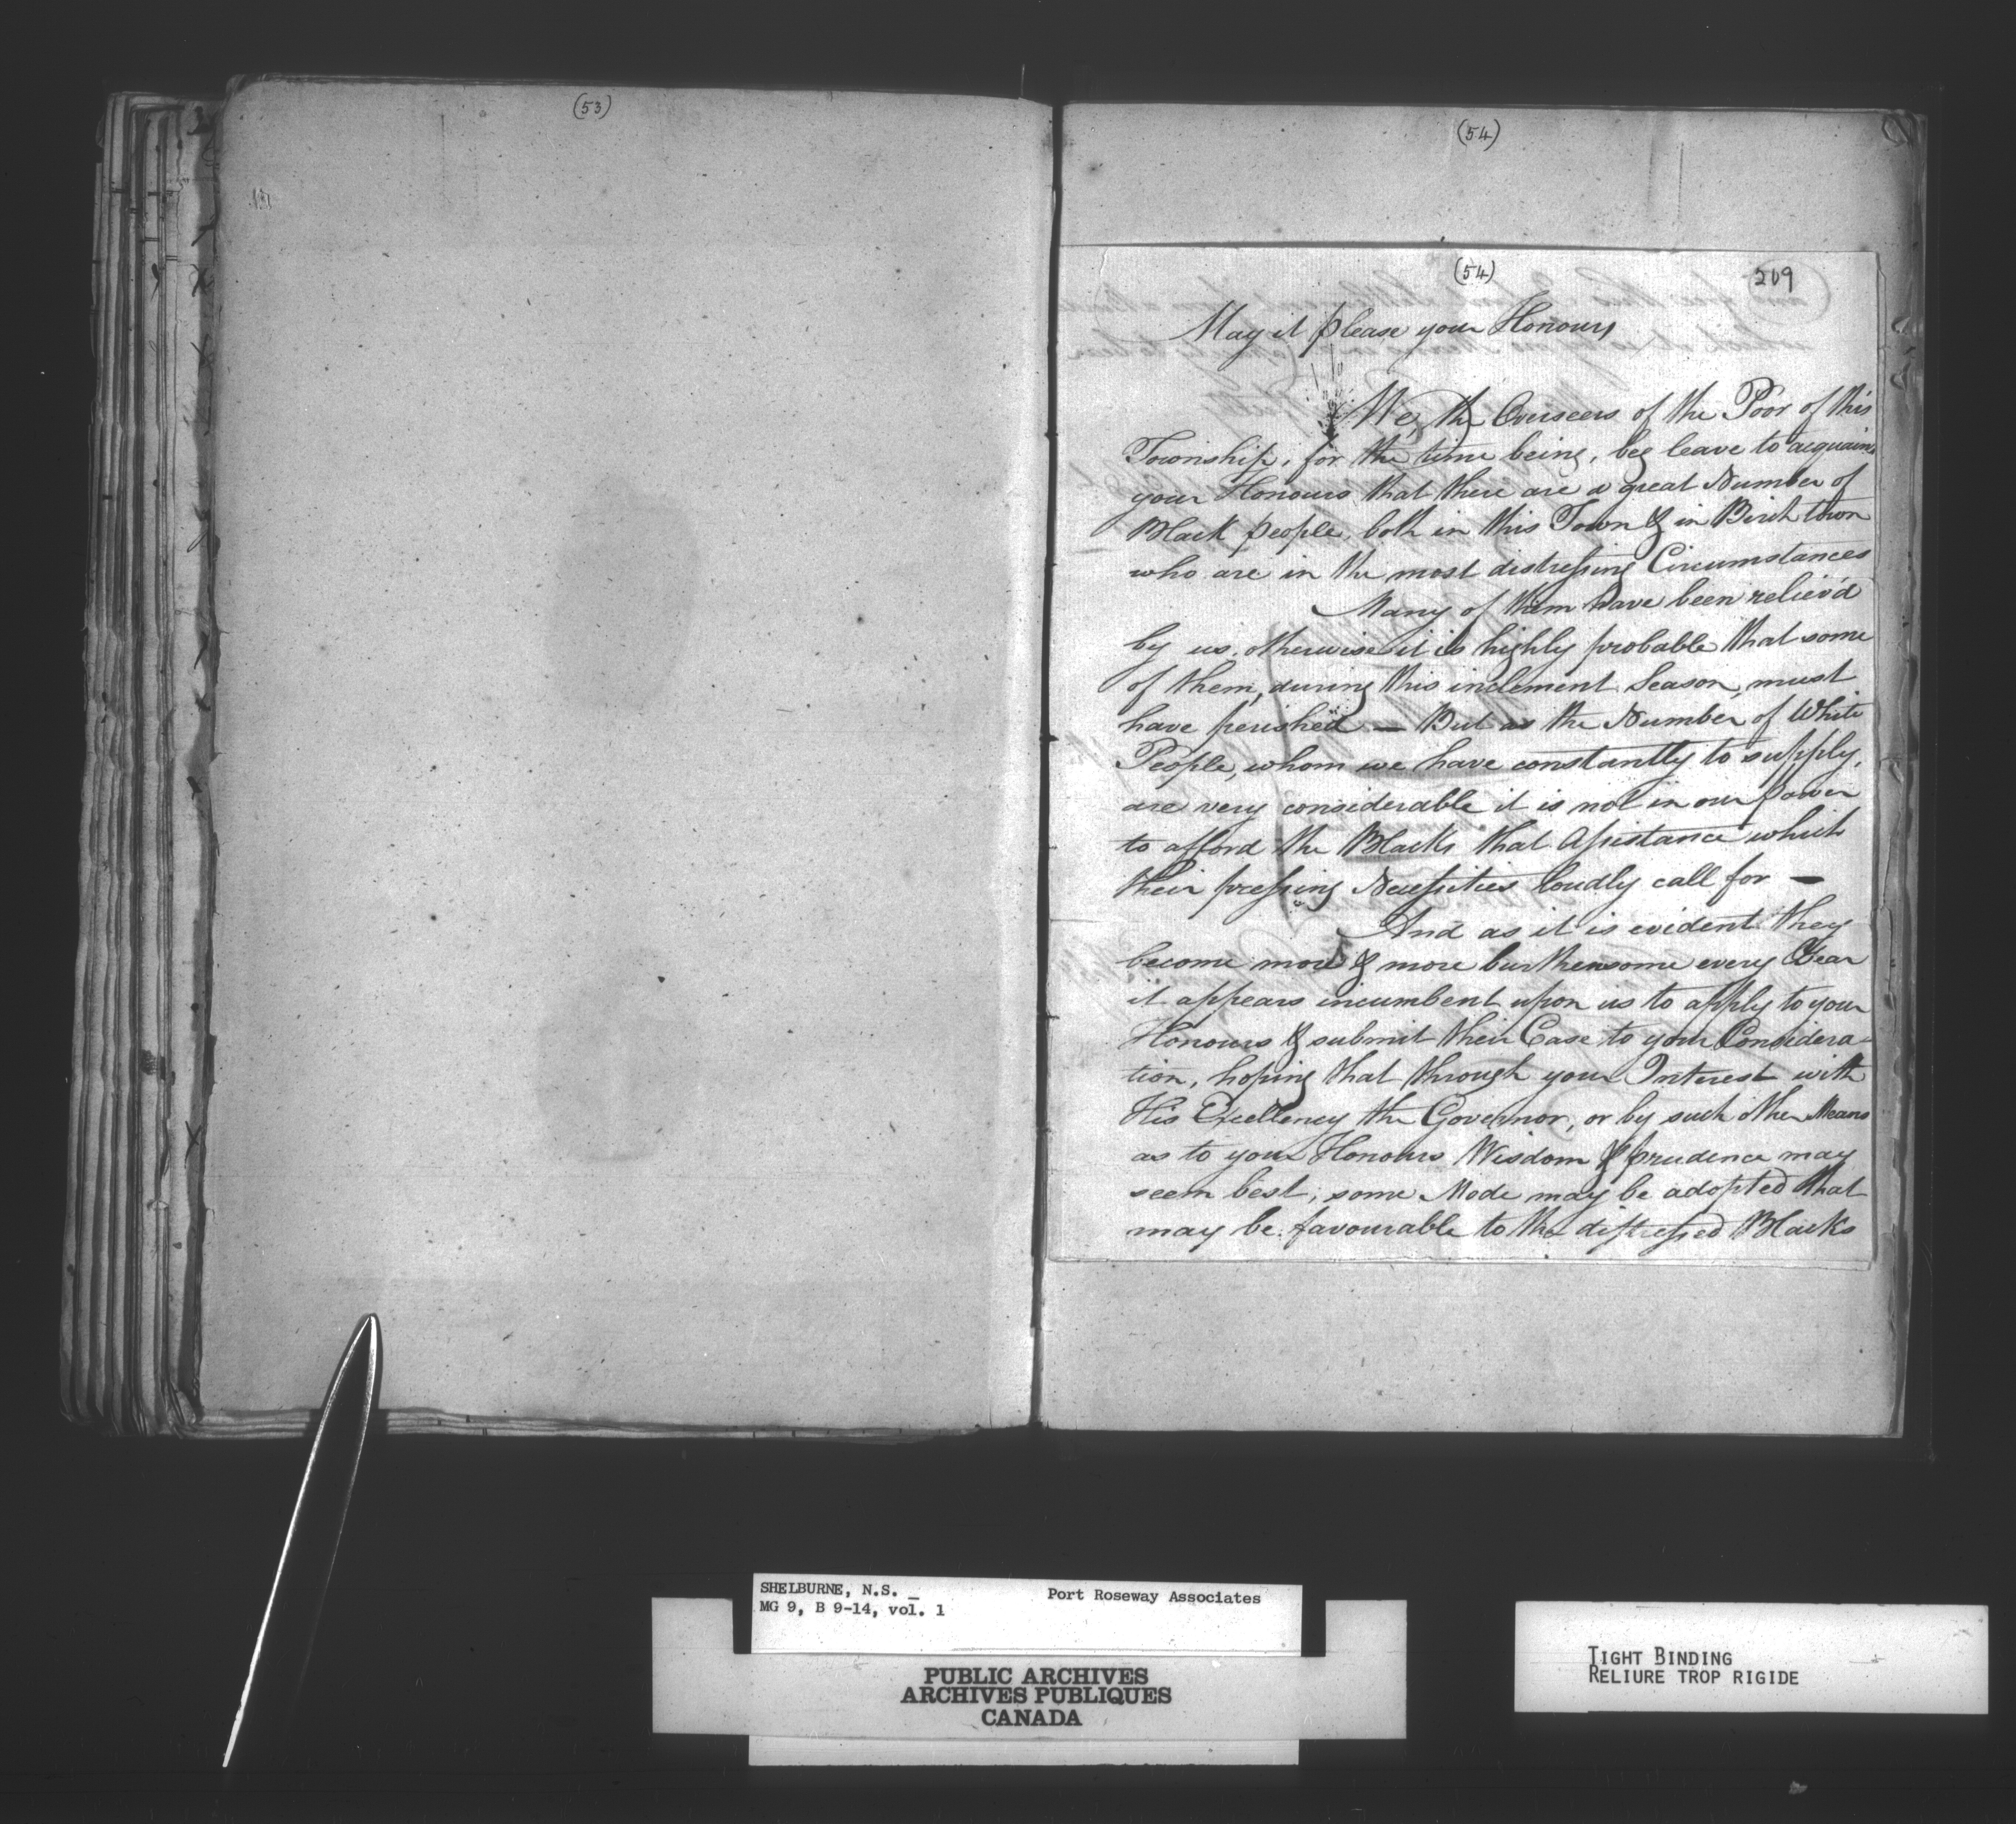 (53)
(54)
(54)
209
May it please your Honours
We, the Overseers of the Poor of this
Township, for the time being, beg leave to acquaint
your Honours that there are a great Number of
Black people, both in this Town & in Birch town
who are in the most distressing Circumstances
Many of them have been reliev'd
by us, otherwise it is highly probable that some
of them, during this inclement Season, must
have perished — But as the Number of White
People, whom we have constantly to supply,
are very considerable it is not in our power
to afford the Blacks that Assistance which
their pressing Necessities loudly call for —
And as it is evident they
become more & more burthensome every Year
it appears incumbent upon us to apply to your
Honours & submit their Case to your Considera-
tion, hoping that through your Interest with
His Excellency the Governor, or by such other Means
as to your Honours Wisdom & prudence may
seem best, some Mode may be adopted that
may be favourable to the distressed Blacks
SHELBURNE, N.S. Port Roseway Associates
MG 9, B 9-14, vol. 1
PUBLIC ARCHIVES
ARCHIVES PUBLIQUES
CANADA
TIGHT BINDING
RELIURE TROP RIGIDE